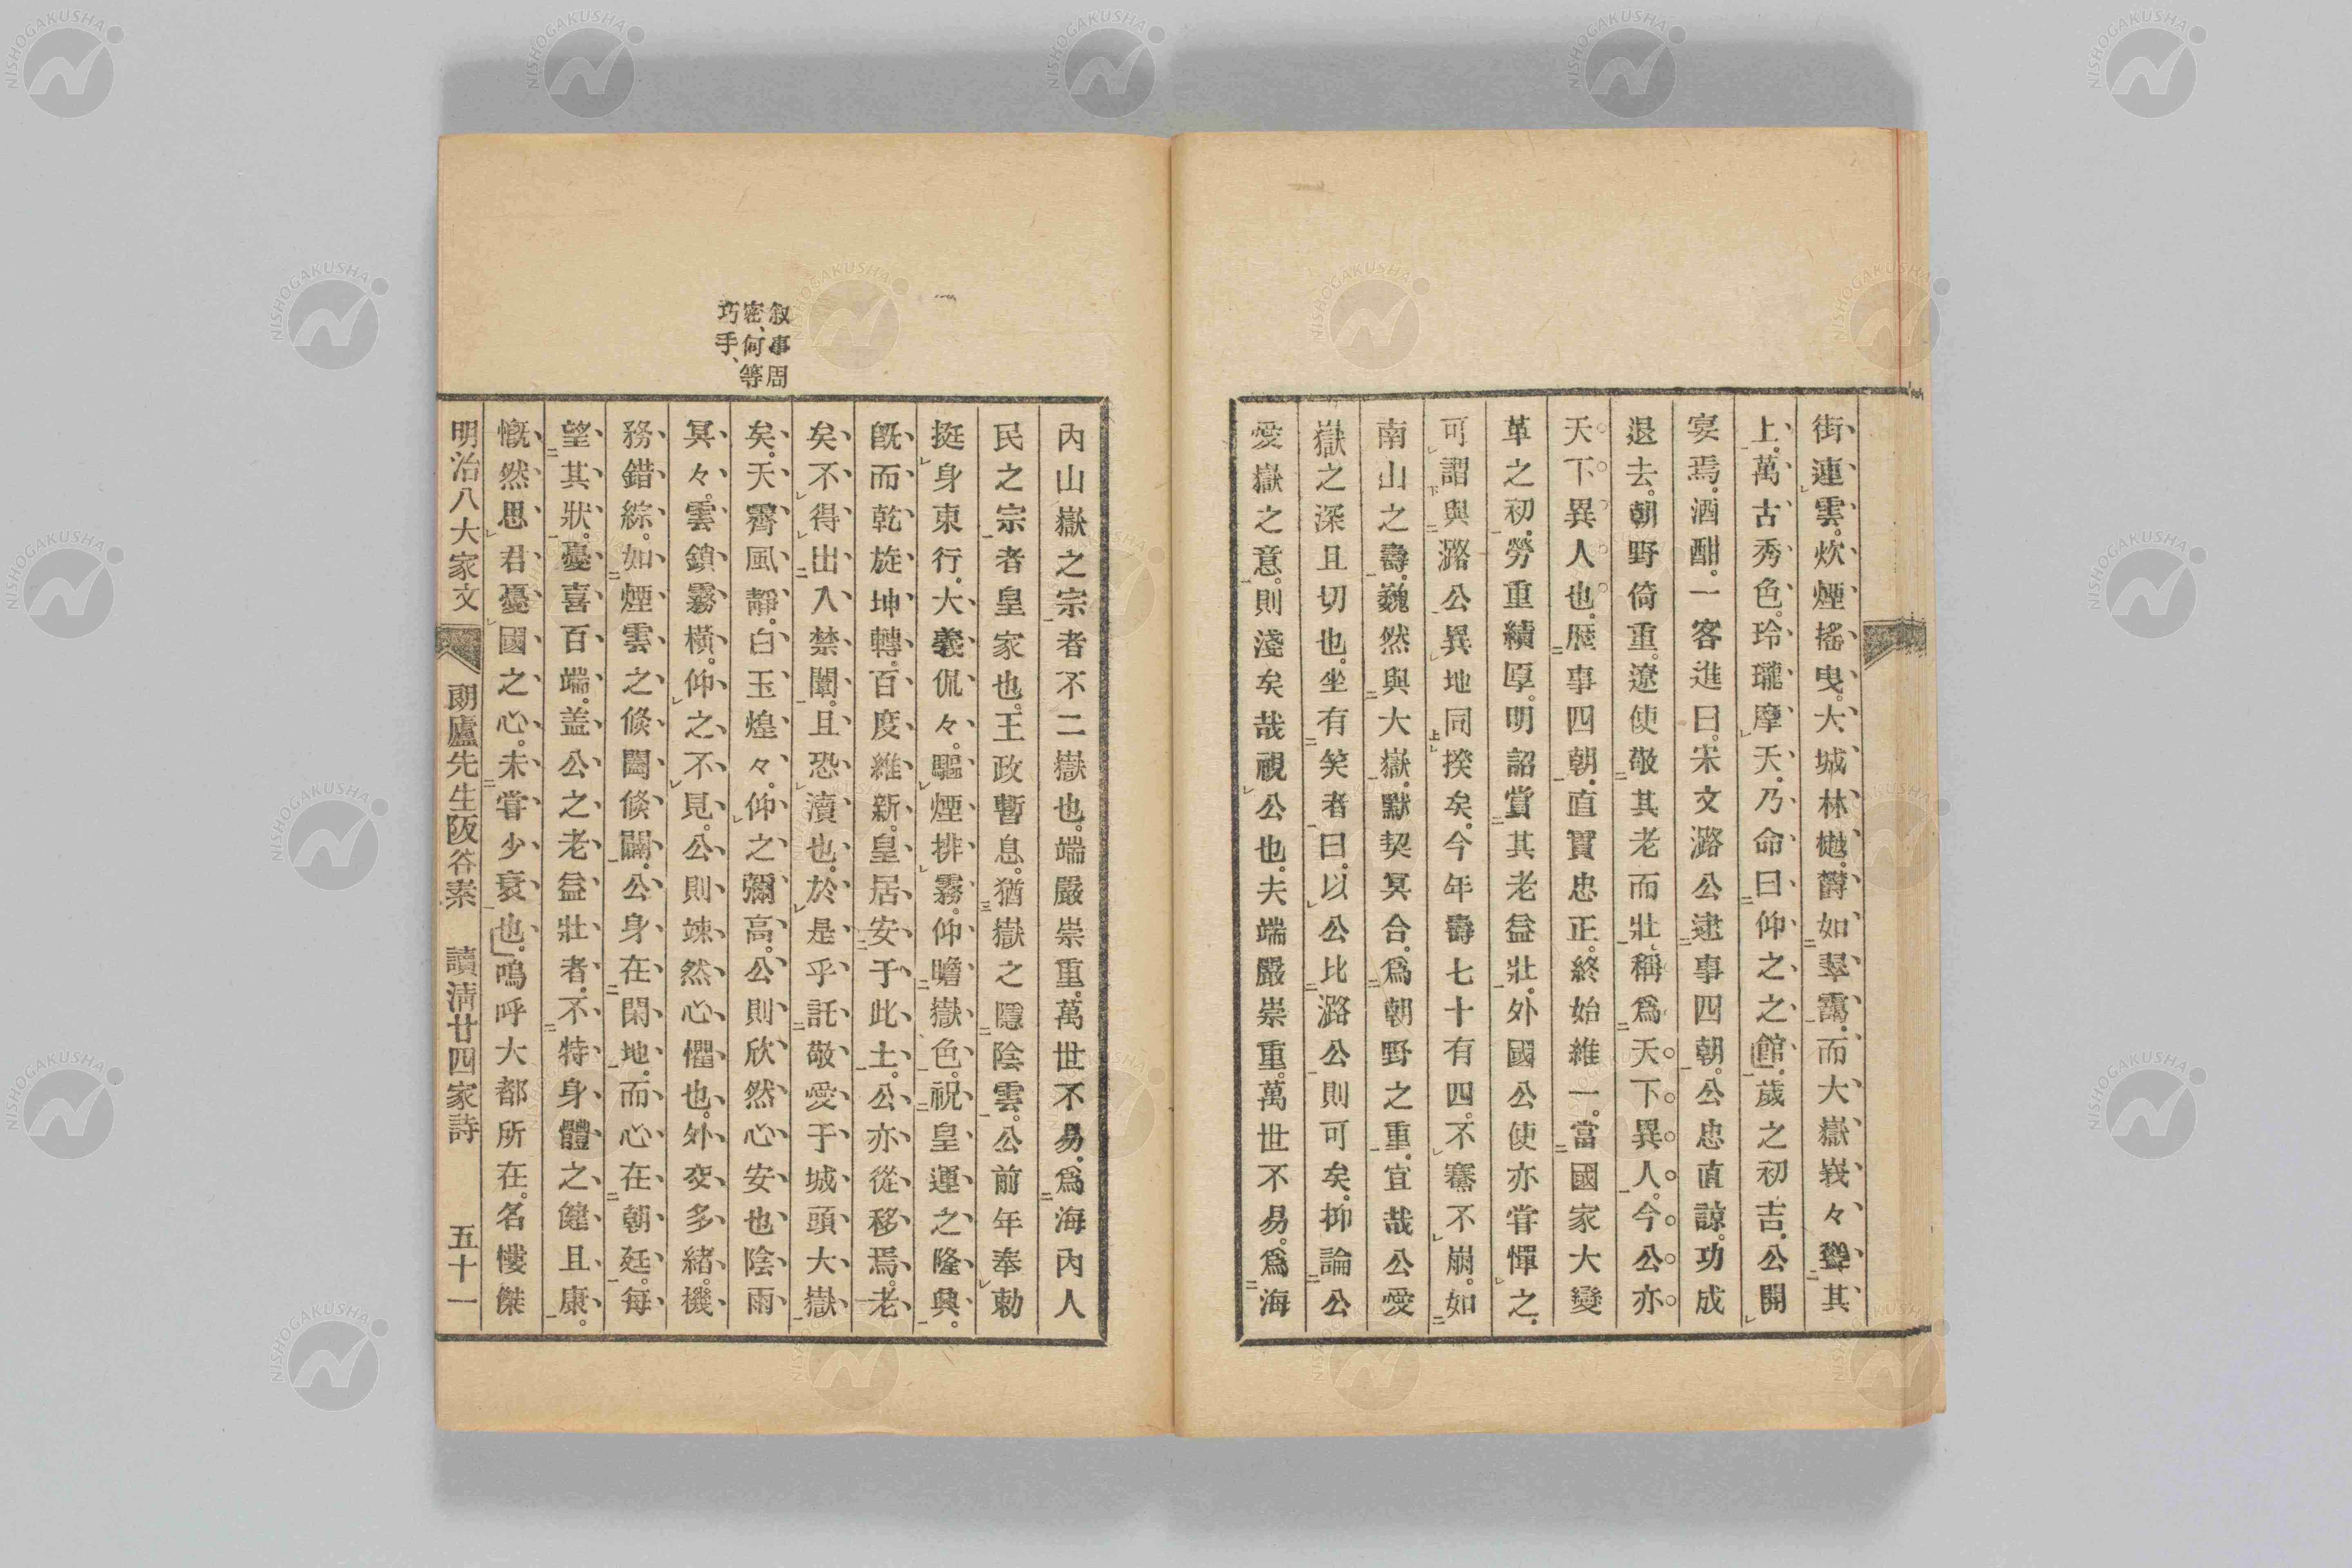 街連雲。炊煙搖曳。大城林樾。欝如翠靄。而大嶽峩々聳其
上。萬古秀色。玲瓏摩天。乃命曰仰之之館。歲之初吉。公開
宴焉。酒酣。一客進曰。宋文潞公逮事四朝。公忠直諒。功成
退去。朝野倚重。遼使敬其老而壯、稱爲天下異人。今公亦
天下異人也。歷事四朝。直實忠正。終始維一。當國家大變
革之初。勞重績厚。明詔賞其老益壯。外國公使亦甞憚之。
可謂與潞公異地同揆矣。今年壽七十有四。不騫不崩。如
南山之壽。巍然與大嶽。默契冥合。爲朝野之重。宜哉公愛
嶽之深且切也。坐有笑者曰。以公比潞公則可矣。抑論公
愛嶽之意。則淺矣哉視公也。夫端嚴崇重。萬世不易。爲海
內山嶽之宗者不二嶽也。端嚴崇重。萬世不易。爲海內人
民之宗者皇家也。王政暫息。猶嶽之隱陰雲。公前年奉勅
挺身東行。大義侃々。驅煙排霧。仰瞻嶽色。祝皇運之隆興。
旣而乾旋坤轉。百度維新。皇居安于此土。公亦從移焉。老
矣不得出入禁闈。且恐瀆也。於是乎託敬愛于城頭大嶽
矣。天霽風靜。白玉煌々。仰之彌高。公則欣然心安也陰雨
冥々。雲鎖霧橫。仰之不見。公則竦然心懼也。外交多緖。機
務錯綜。如煙雲之倐闔倐闢。公身在閑地。而心在朝廷。每
望其狀。憂喜百端。盖公之老益壯者。不特身體之健且康。
慨然思君憂國之心。未甞少衰也。嗚呼大都所在。名樓傑
叙事周
密、何等
巧手、
明治八大家文 朗廬先生阪谷素 讀淸廿四家詩 五十一
NISHOGAKUSHA